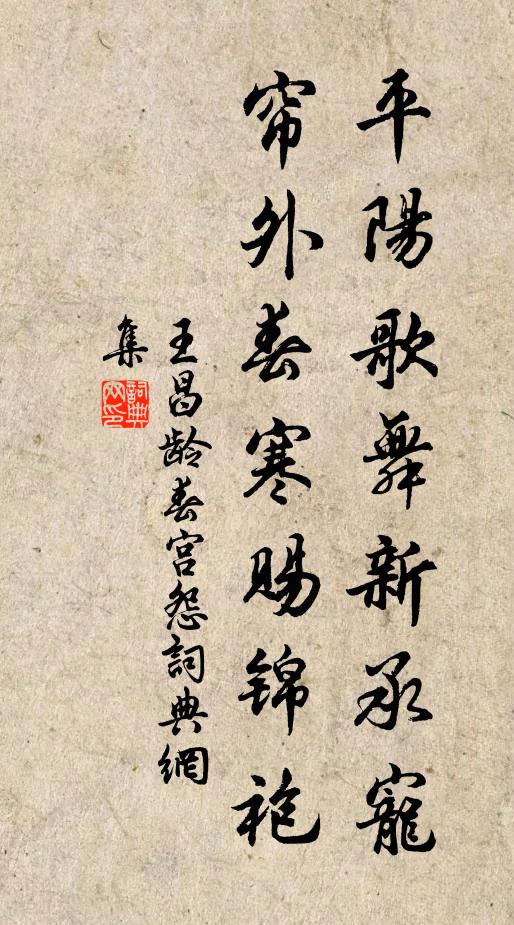 平陽歌舞新承寵
帘外春寒賜錦袍
王昌龄春宫怨詞典網
集
詞典网印